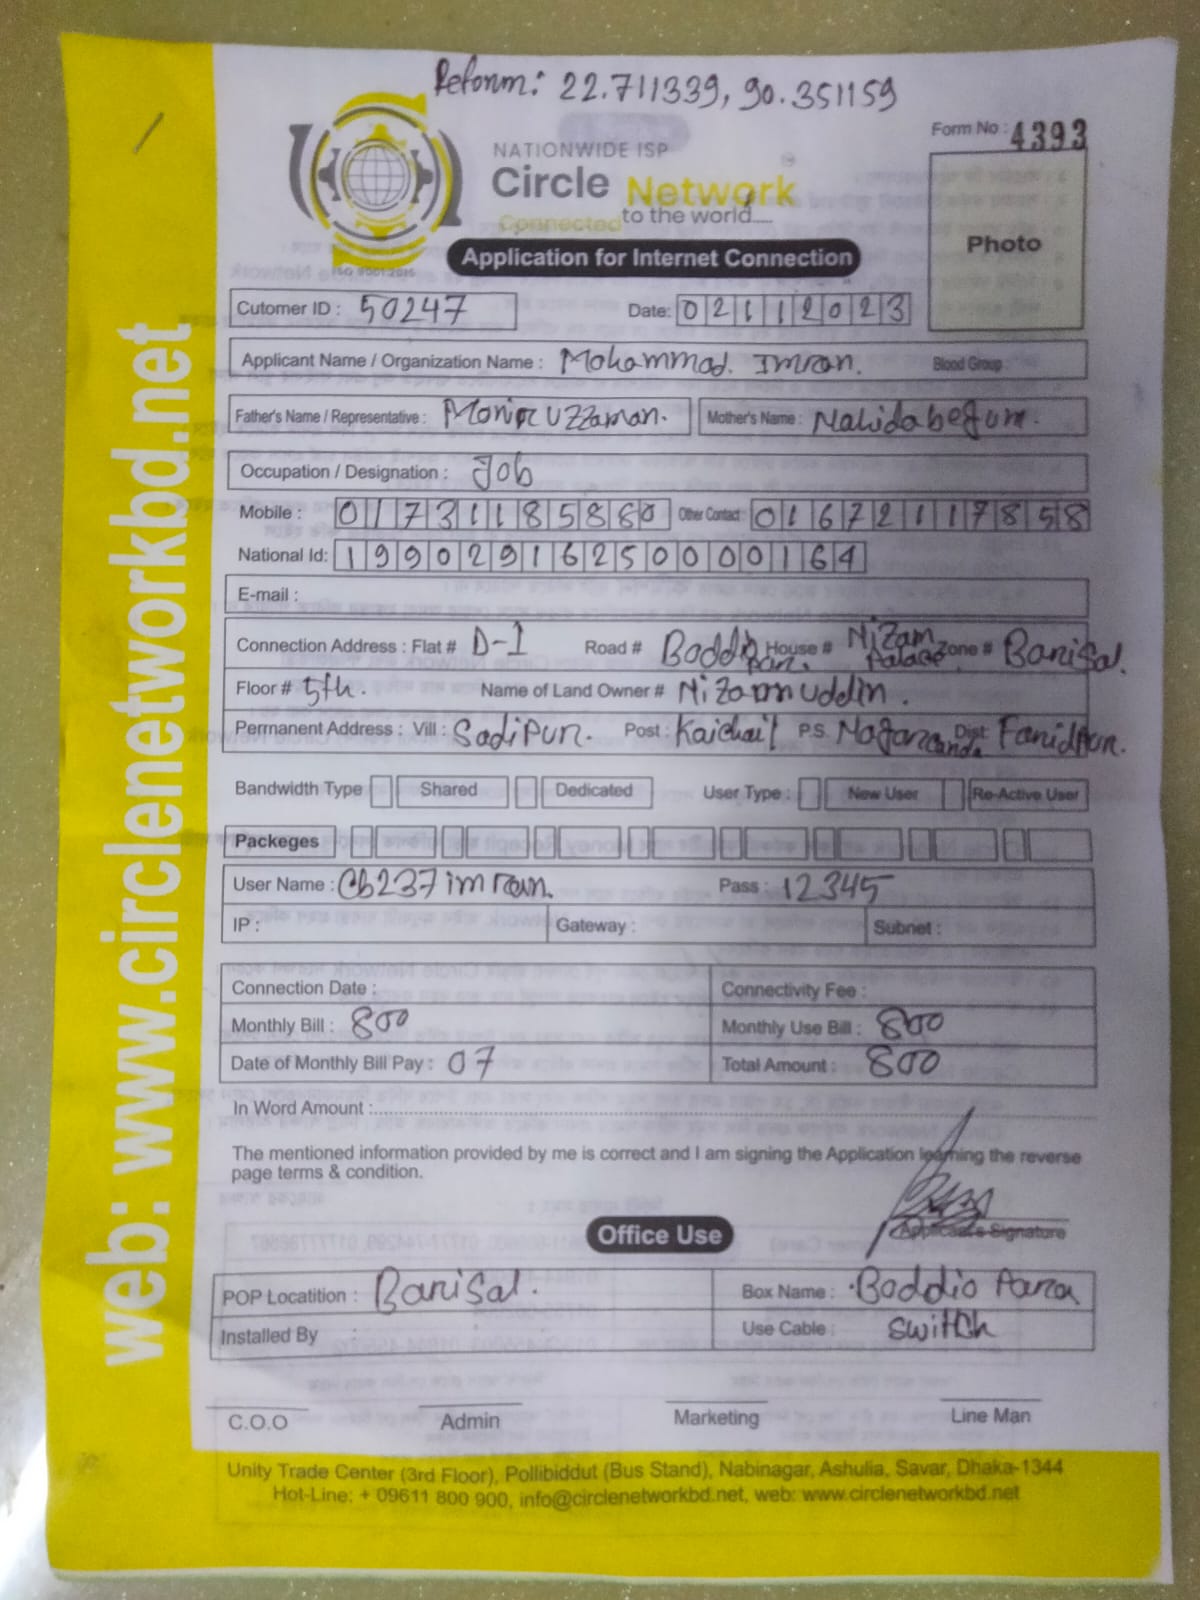 Reform: 22.711339, 90.351159
Form No : 4393
NATIONWIDE ISP
Circle Network
Connected to the world.....
ISO 9001:2015
Photo
Application for Internet Connection
Cutomer ID : 50247 Date: 02112023
Applicant Name / Organization Name : Mohammad. Imran. Blood Group :
Father's Name / Representative : Monir uzzaman. Mother's Name : Nahida begum.
Occupation / Designation : Job
Mobile : 01731185880 Other Contact: 01672117858
National Id: 19902916250000164
E-mail :
Connection Address : Flat # D-1 Road # Boddio para. House # Nizam Palace Zone # Barisal.
Floor # 5th. Name of Land Owner # Nizam uddin.
Permanent Address : Vill : Sadipur. Post : Kaichail P.S. Nagarcanda Dist: Faridpur.
Bandwidth Type Shared Dedicated User Type : New User Re-Active User
Packeges
User Name : Cb237imran. Pass : 12345
IP : Gateway : Subnet :
Connection Date : Connectivity Fee :
Monthly Bill : 800 Monthly Use Bill : 800
Date of Monthly Bill Pay : 07 Total Amount : 800
In Word Amount :
The mentioned information provided by me is correct and I am signing the Application learning the reverse
page terms & condition.
Applicant's Signature
Office Use
POP Locatition : Barisal. Box Name : Boddio Para
Installed By Use Cable : switch
C.O.O Admin Marketing Line Man
Unity Trade Center (3rd Floor), Pollibiddut (Bus Stand), Nabinagar, Ashulia, Savar, Dhaka-1344
Hot-Line: + 09611 800 900, info@circlenetworkbd.net, web: www.circlenetworkbd.net
web: www.circlenetworkbd.net